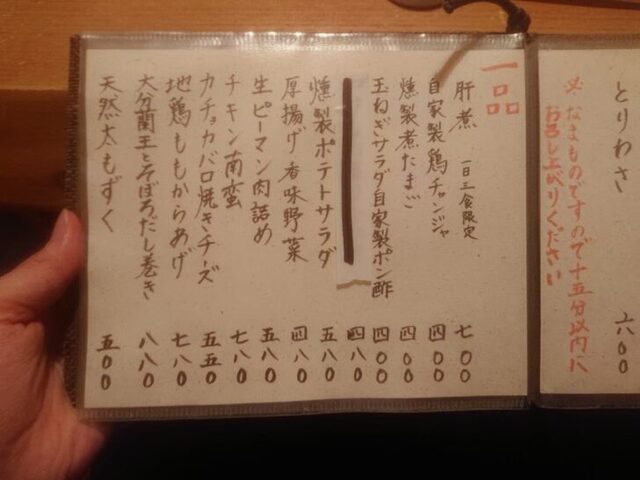 とりわさ 六〇〇
※なまものですので十五分以内に
お召し上がりください
一品
肝煮 一日三食限定 七〇〇
自家製鶏チャンジャ 四〇〇
燻製煮たまご 四〇〇
玉ねぎサラダ自家製ポン酢 四〇〇
四八〇
燻製ポテトサラダ 五八〇
厚揚げ香味野菜 四八〇
生ピーマン肉詰め 五八〇
チキン南蛮 七八〇
カチョカバロ焼きチーズ 五五〇
地鶏ももからあげ 七八〇
大分蘭王とそぼろだし巻き 八八〇
天然太もずく 五〇〇